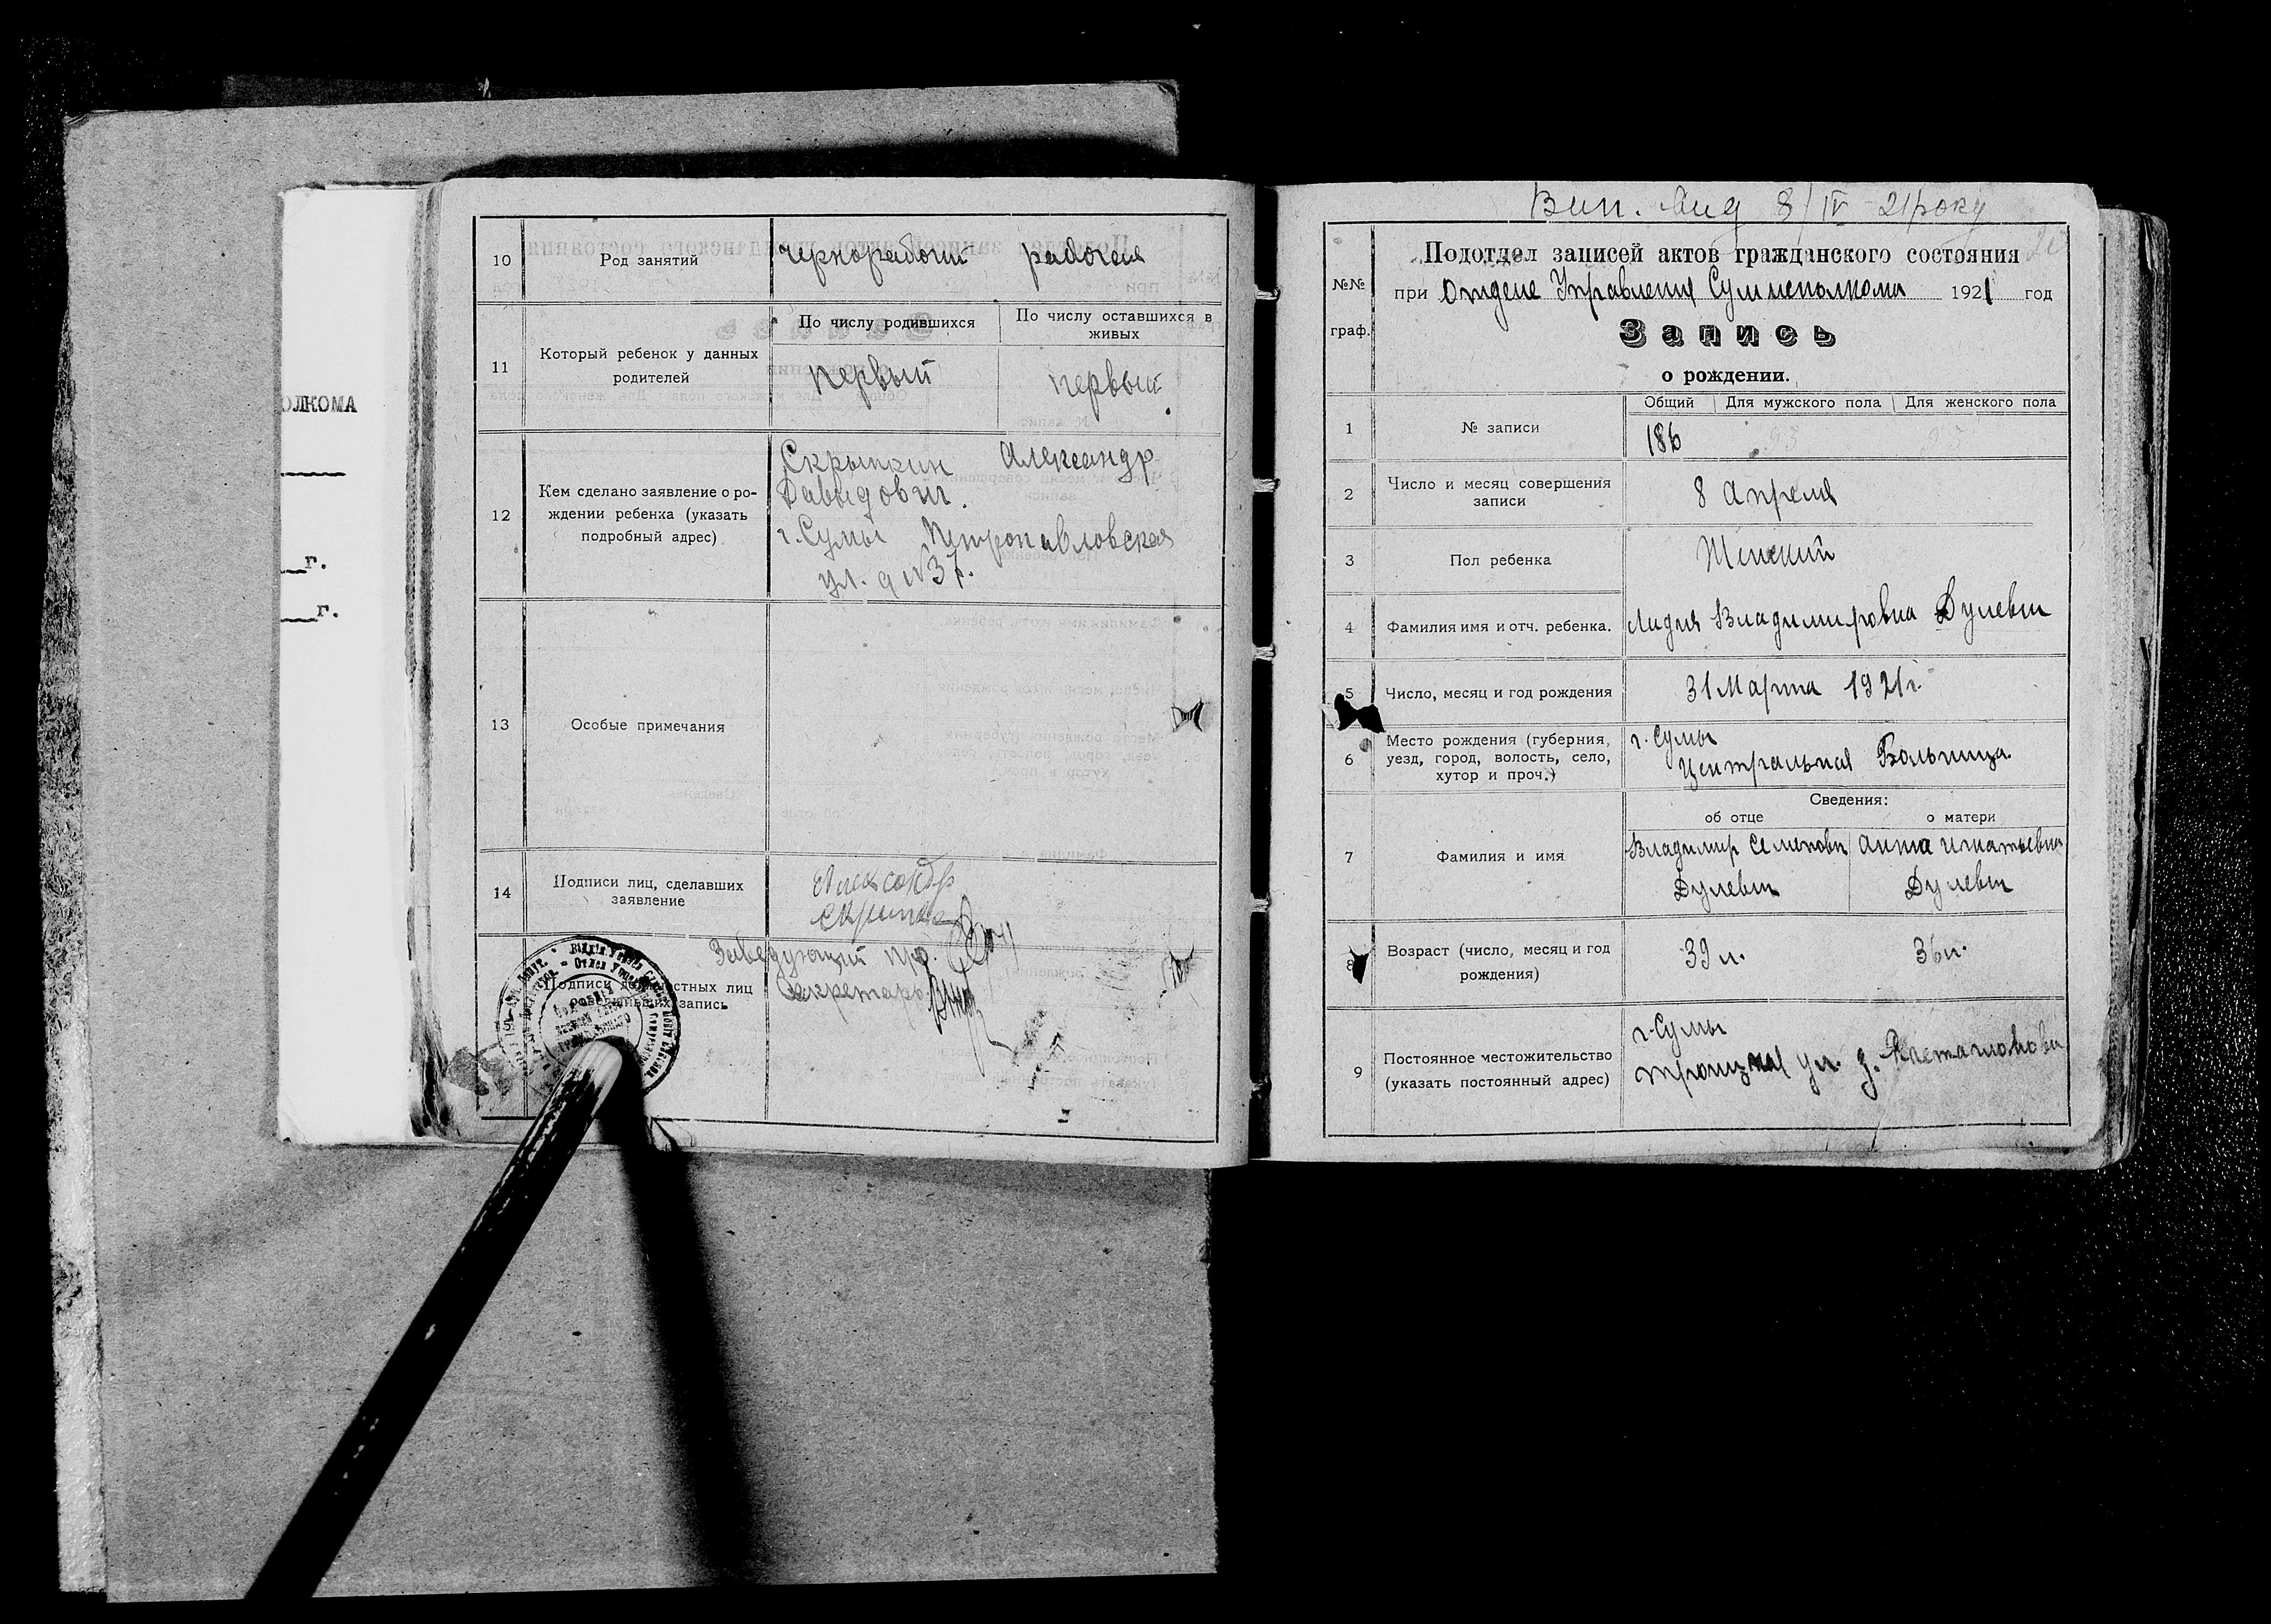 ОЛКОМА
г.
г.
10 Род занятий чернорабочий рабочая
11 Который ребенок у данных родителей
По числу родившихся По числу оставшихся в живых
первый первый
12 Кем сделано заявление о ро-
ждении ребенка (указать
подробный адрес)
Скрыпкин Александр
Давидович.
г. Сумы Петропавловская
ул. д №37.
13 Особые примечания
14 Подписи лиц, сделавших
заявление
Александр
Заведующий
Подписи должностных лиц
Секретарь
совершивших запись
Вип. вид 8/IV 21 року
№№
граф.
Подотдел записей актов гражданского состояния
при Отделе Управления Сумисполкома 1921 год
Запись
о рождении.
Общий Для мужского пола Для женского пола
1 № записи 186
2 Число и месяц совершения
записи
8 Апреля
3 Пол ребенка Женский
4 Фамилия имя и отч. ребенка. Лидия Владимировна Дулевич
5 Число, месяц и год рождения 31 Марта 1921 г.
6 Место рождения (губерния,
уезд, город, волость, село,
хутор и проч.)
г. Сумы
Центральная Больница.
Сведения:
об отце о матери
7 Фамилия и имя
Владимир Семенович Анна Игнатьевна
Дулевич Дулевич
8 Возраст (число, месяц и год
рождения)
39 л. 36 л.
9 Постоянное местожительство
(указать постоянный адрес)
г. Сумы
Троицкая ул. д.